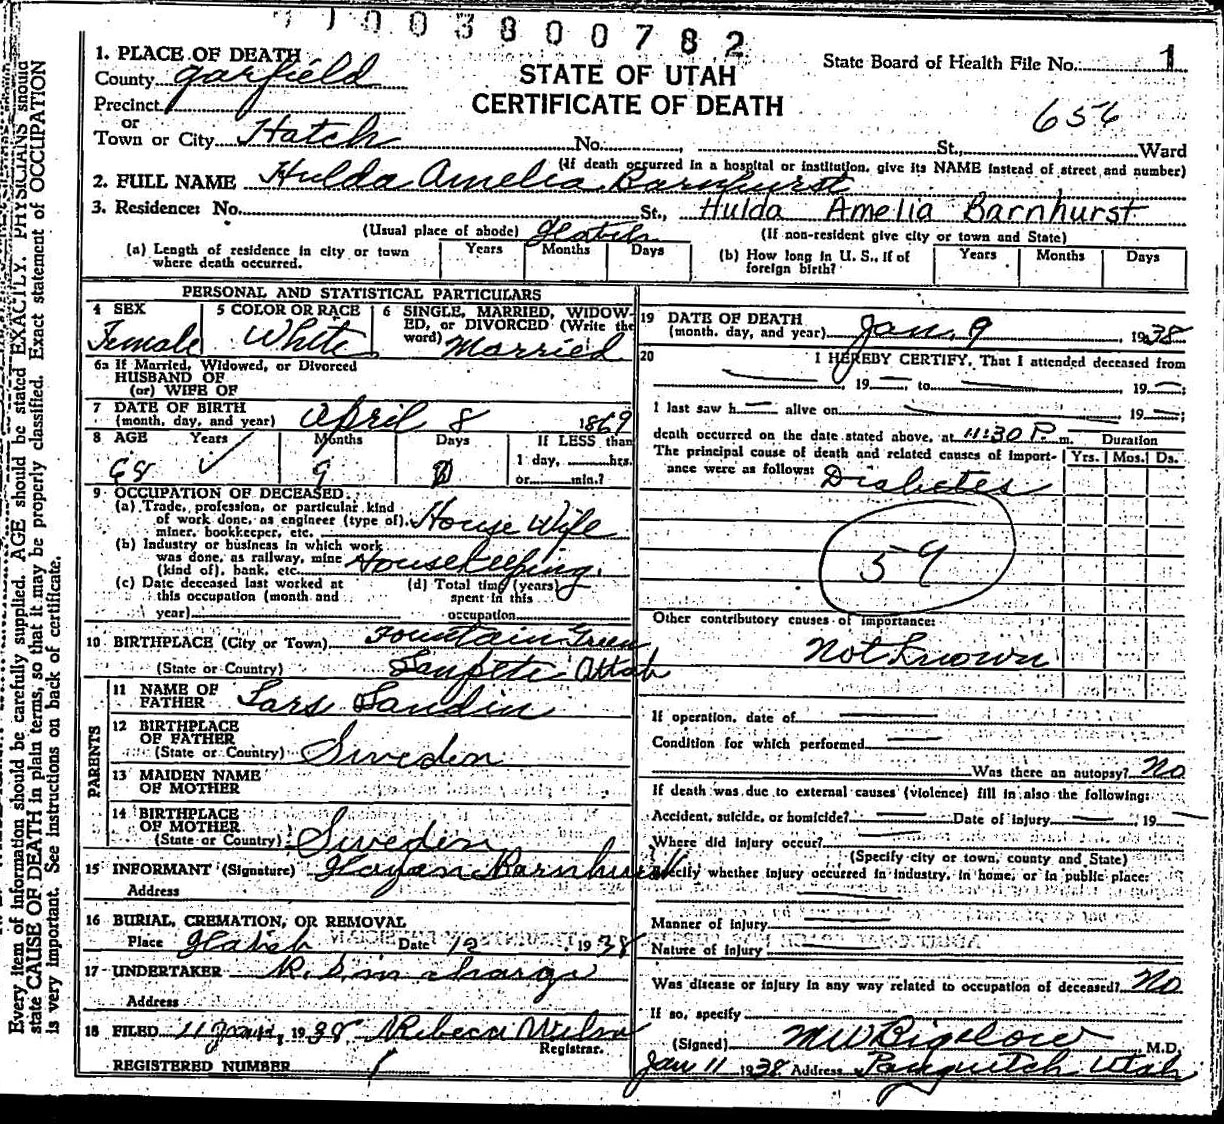 003800782
1
1. PLACE OF DEATH
STATE OF UTAH
CERTIFICATE OF DEATH
State Board of Health File No.
656
County Garfield
Precinct
or
Town or City Hatch No. , St., Ward
(If death occurred in a hospital or institution, give its NAME instead of street and number)
2. FULL NAME Hulda Amelia Barnhurst
3. Residence: No. St., Hulda Amelia Barnhurst
(Usual place of abode) Hatch (If non-resident give city or town and State)
(a) Length of residence in city or town where death occurred. Years Months Days
(b) How long in U. S., if of foreign birth? Years Months Days
PERSONAL AND STATISTICAL PARTICULARS
4 SEX Female
5 COLOR OR RACE White
6 SINGLE, MARRIED, WIDOWED, or DIVORCED (Write the word) Married
6a If Married, Widowed, or Divorced
HUSBAND OF
(or) WIFE OF
7 DATE OF BIRTH
(month, day, and year) April 8 1869
8 AGE Years Months Days If LESS than
68 9 1 day, hrs.
or min.?
9 OCCUPATION OF DECEASED
(a) Trade, profession, or particular kind
of work done, as engineer (type of), House Wife
miner, bookkeeper, etc.
(b) Industry or business in which work
was done, as railway, mine Housekeeping
(kind of), bank, etc.
(c) Date deceased last worked at
this occupation (month and
year)
(d) Total time (years)
spent in this
occupation
10 BIRTHPLACE (City or Town) Fountain Green
(State or Country) Sanpete Uttah
PARENTS
11 NAME OF
FATHER Lars Sandin
12 BIRTHPLACE
OF FATHER
(State or Country) Sweden
13 MAIDEN NAME
OF MOTHER
14 BIRTHPLACE
OF MOTHER
(State or Country) Sweden
15 INFORMANT (Signature) Barnhurst
Address
16 BURIAL, CREMATION, OR REMOVAL
Place Hatch Date 12 1938
17 UNDERTAKER R.S. in charge
Address
18 FILED 11 Jan, 1938 Rebeca Wilson
Registrar.
REGISTERED NUMBER 1
19 DATE OF DEATH
(month, day, and year) Jan, 9, 1938
20 I HEREBY CERTIFY, That I attended deceased from
, 19 , to 19 ;
I last saw h alive on 19 ;
death occurred on the date stated above, at 11:30 P. m. Duration
The principal cause of death and related causes of importance were as follows: Yrs. Mos. Ds.
Diabetes
59
Other contributory causes of importance:
Not Known
If operation, date of
Condition for which performed
Was there an autopsy? No
If death was due to external causes (violence) fill in also the following:
Accident, suicide, or homicide? Date of injury 19
Where did injury occur?
(Specify city or town, county and State)
Specify whether injury occurred in industry, in home, or in public place:
Manner of injury
Nature of injury
Was disease or injury in any way related to occupation of deceased? No
If so, specify
(Signed) M W Bigelow M.D.
Jan 11 1938 Address Panguitch Utah
Every item of information should be carefully supplied. AGE should be stated EXACTLY. PHYSICIANS should
state CAUSE OF DEATH in plain terms, so that it may be properly classified. Exact statement of OCCUPATION
is very important. See instructions on back of certificate.